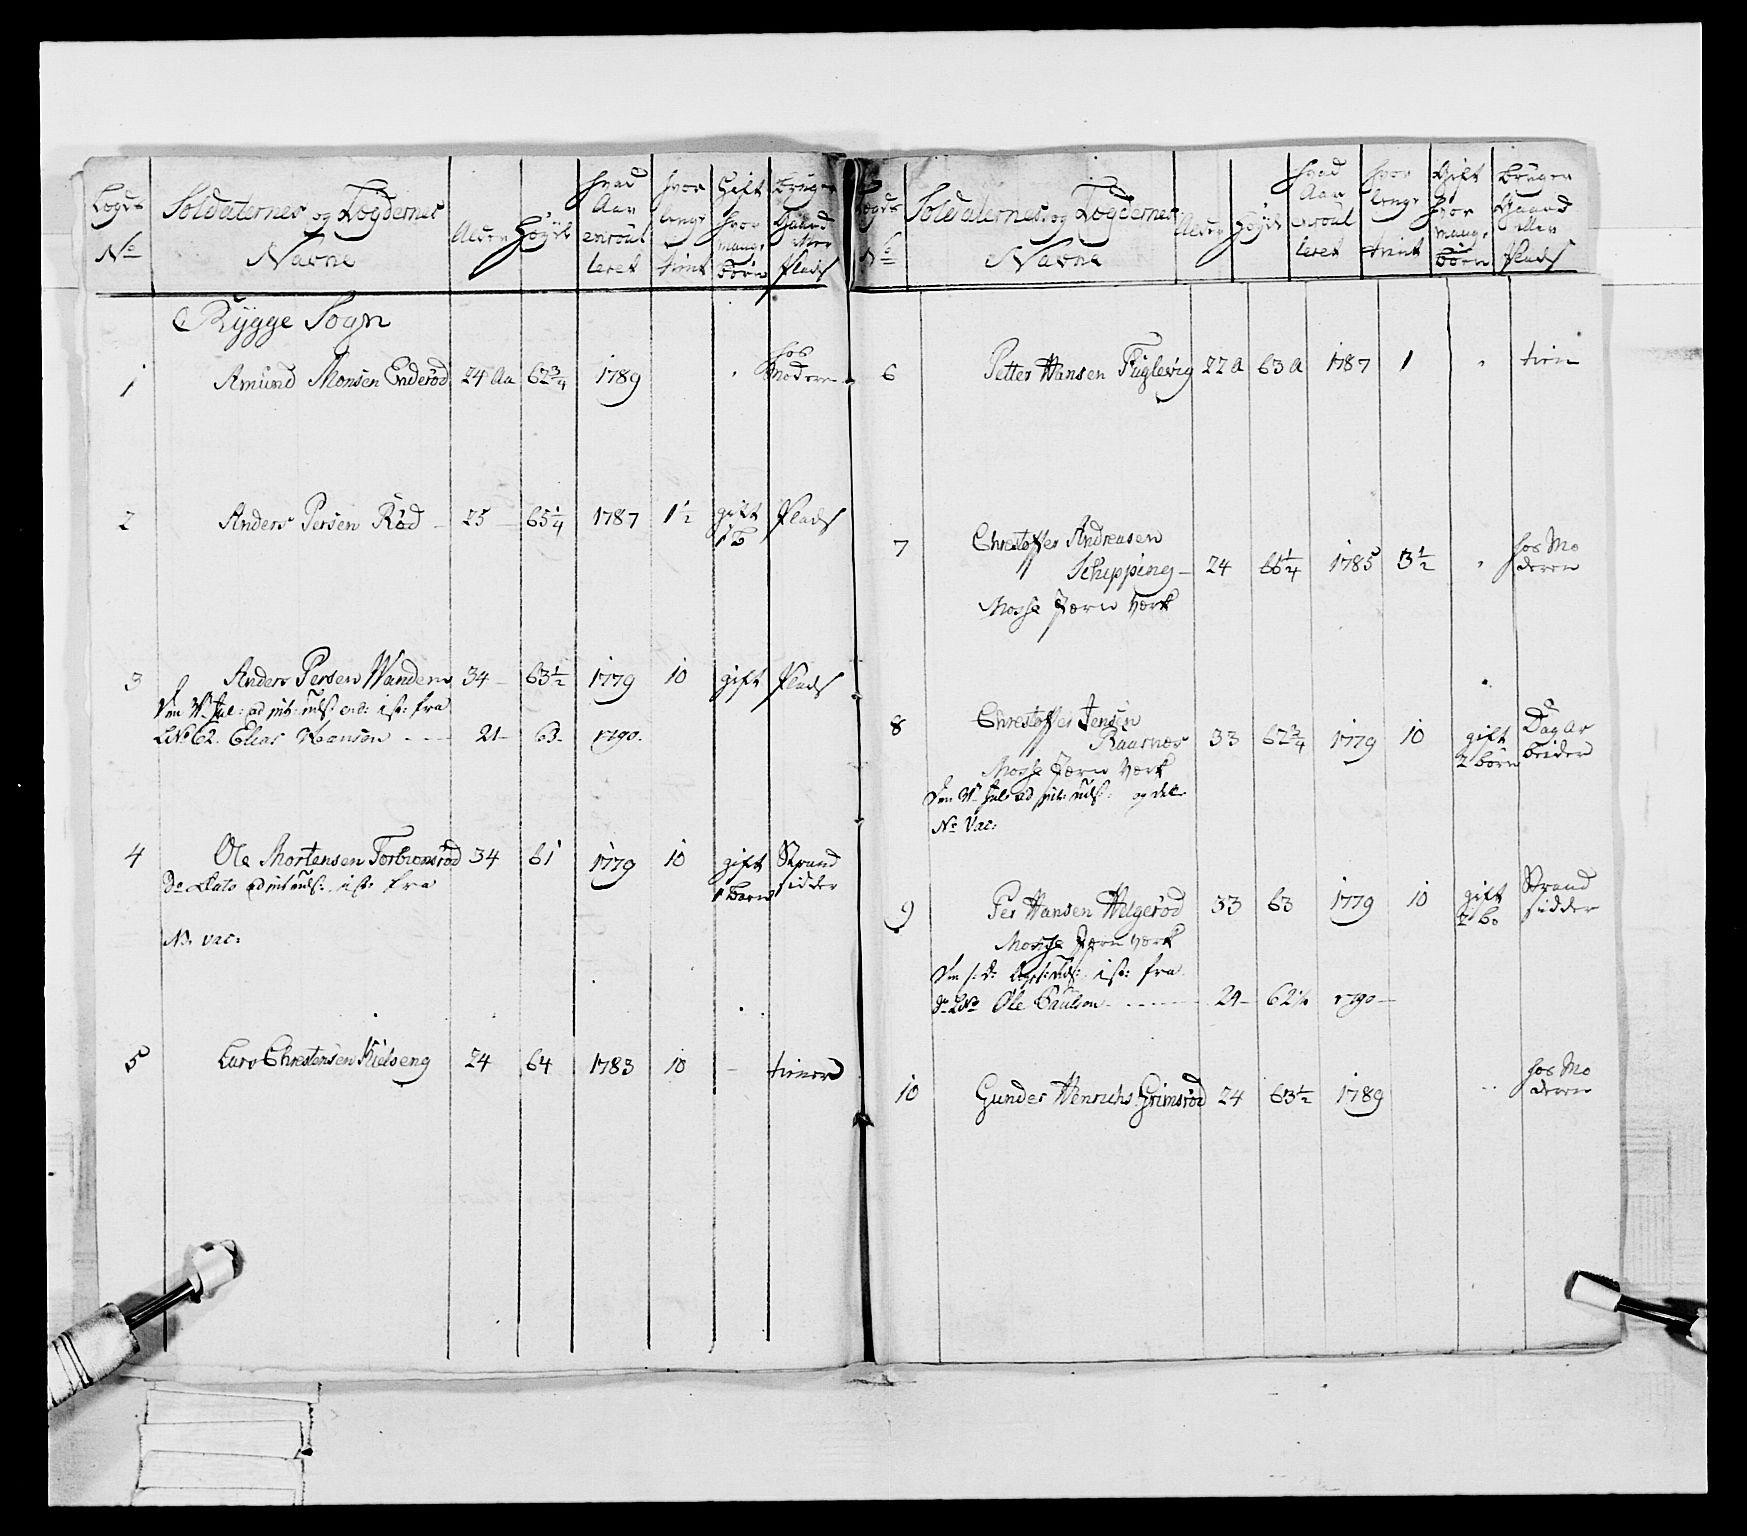 Legds No | Soldaternes og Legdernes Navne | Alder | Höyde | hvad Aar enroulleret | hvor lenge tient | Gift hvor mange börn | bruger Gaard eller Plads
Rygge Sogn
1 Amund Monsen Enderöd 24 Aa 62 3/4 1789 " hos Moderen
2 Anders Persen Röd 25 65 1/4 1787 1 1/2 gift 1 B Plads
3 Anders Persen Wandem 34 63 1/2 1779 10 gift Plads
fra
LNo 62. Elias Hansen 21 63 1790.
4 Ole Mortensen Torbiornsröd 34 61 1779 10 gift 1 barn Strand sidder
Do Dato fra
No vac:
5 Lars Christensen Kielseng 24 64 1783 10 - tiener
Legds No | Soldaternes og Legdernes Navne | Alder | Höyde | hvad Aar enroulleret | hvor lenge tient | Gift hvor mange börn | Bruger Gaard eller Plads
6 Petter Hansen Fuglevig 22 A 63 A 1787 1 " tien
7 Christoffer Andreasen
Schipping 24 66 1/4 1785 3 1/2 " hos Mo deren
Mosse Jærn Værk
8 Christoffer Jensen
Raarnes 33 62 3/4 1779 10 gift 2 börn Dag Ar beider
Mosse Jærn Værk
No Vac:
9 Per Hansen Helgeröd 33 63 1779 10 gift 2 bö Strand sidder
Mosse Jærn Værk
fra
Ole Paulsen 24 62 1/2 1790
10 Gunder Henrichs. Grimsröd 24 63 1/2 1789 " hos Mo deren